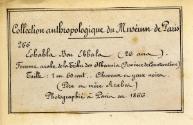 Collection anthropologique du Muséum de Paris
266
Ben (26 ans).
Femme arabe de la Tribu des (Province de Constantine)
Taille : 1m 60 cent. Cheveux et yeux noirs
(Père et mère Arabes)
Photographié à Paris en 1863